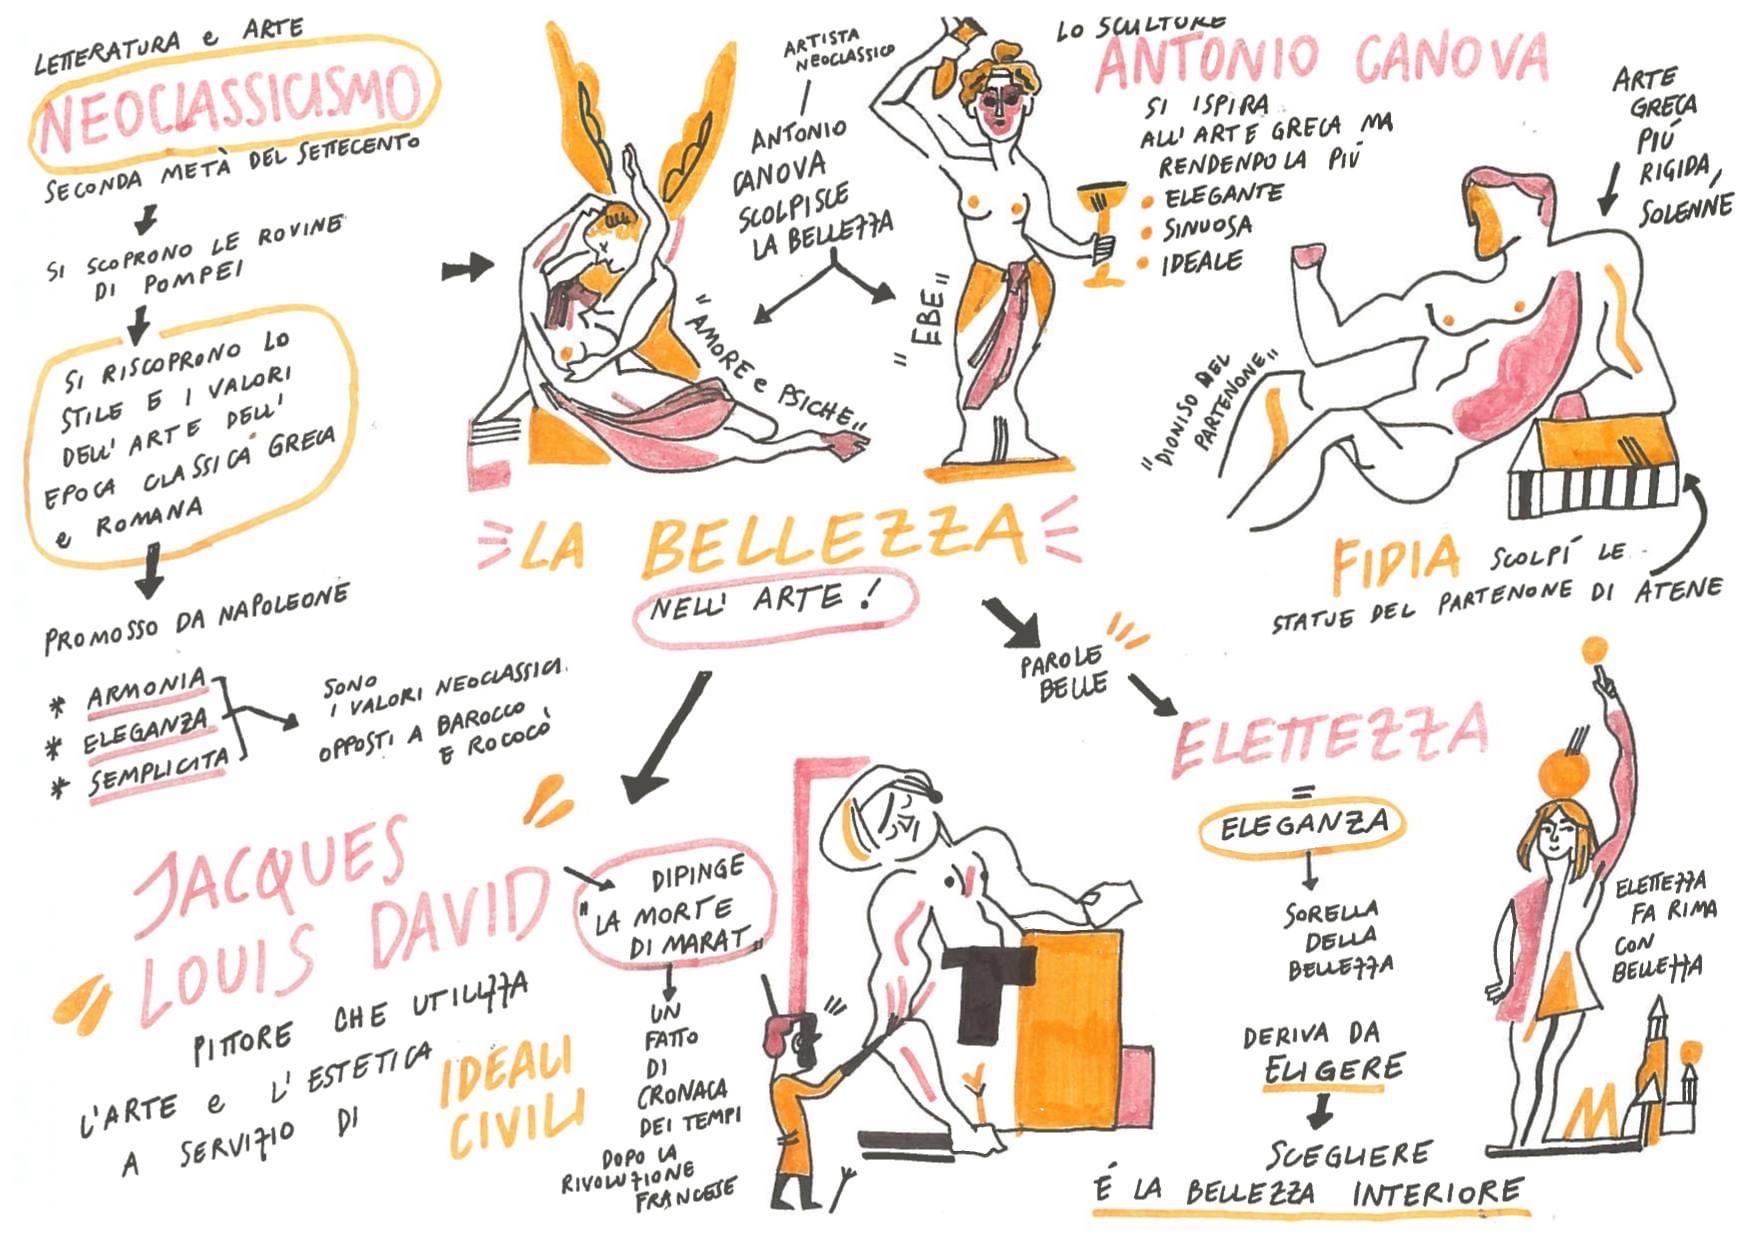 LETTERATURA e ARTE
NEOCLASSICISMO
SECONDA METÀ DEL SETTECENTO
SI SCOPRONO LE ROVINE
DI POMPEI
SI RISCOPRONO LO
STILE E I VALORI
DELL'ARTE DELL'
EPOCA CLASSICA GRECA
e ROMANA
PROMOSSO DA NAPOLEONE
* ARMONIA
* ELEGANZA
* SEMPLICITA
SONO
I VALORI NEOCLASSICI.
OPPOSTI A BAROCCO
E ROCOCÒ
ARTISTA
NEOCLASSICO
ANTONIO
CANOVA
SCOLPISCE
LA BELLEZZA
"AMORE e PSICHE"
"EBE"
LO SCULTORE
ANTONIO CANOVA
SI ISPIRA
ALL'ARTE GRECA MA
RENDENDOLA PIÚ
• ELEGANTE
• SINUOSA
• IDEALE
ARTE
GRECA
PIÚ
RIGIDA,
SOLENNE
"DIONISO DEL
PARTENONE"
FIDIA SCOLPÍ LE
STATUE DEL PARTENONE DI ATENE
LA BELLEZZA
NELL'ARTE!
PAROLE
BELLE
ELETTEZZA
=
ELEGANZA
SORELLA
DELLA
BELLEZZA
DERIVA DA
ELIGERE
SCEGLIERE
É LA BELLEZZA INTERIORE
ELETTEZZA
FA RIMA
CON
BELLEZZA
M
JACQUES
LOUIS DAVID
PITTORE CHE UTILIZZA
L'ARTE e L'ESTETICA
A SERVIZIO DI
IDEALI
CIVILI
DIPINGE
"LA MORTE
DI MARAT"
UN
FATTO
DI
CRONACA
DEI TEMPI
DOPO LA
RIVOLUZIONE
FRANCESE